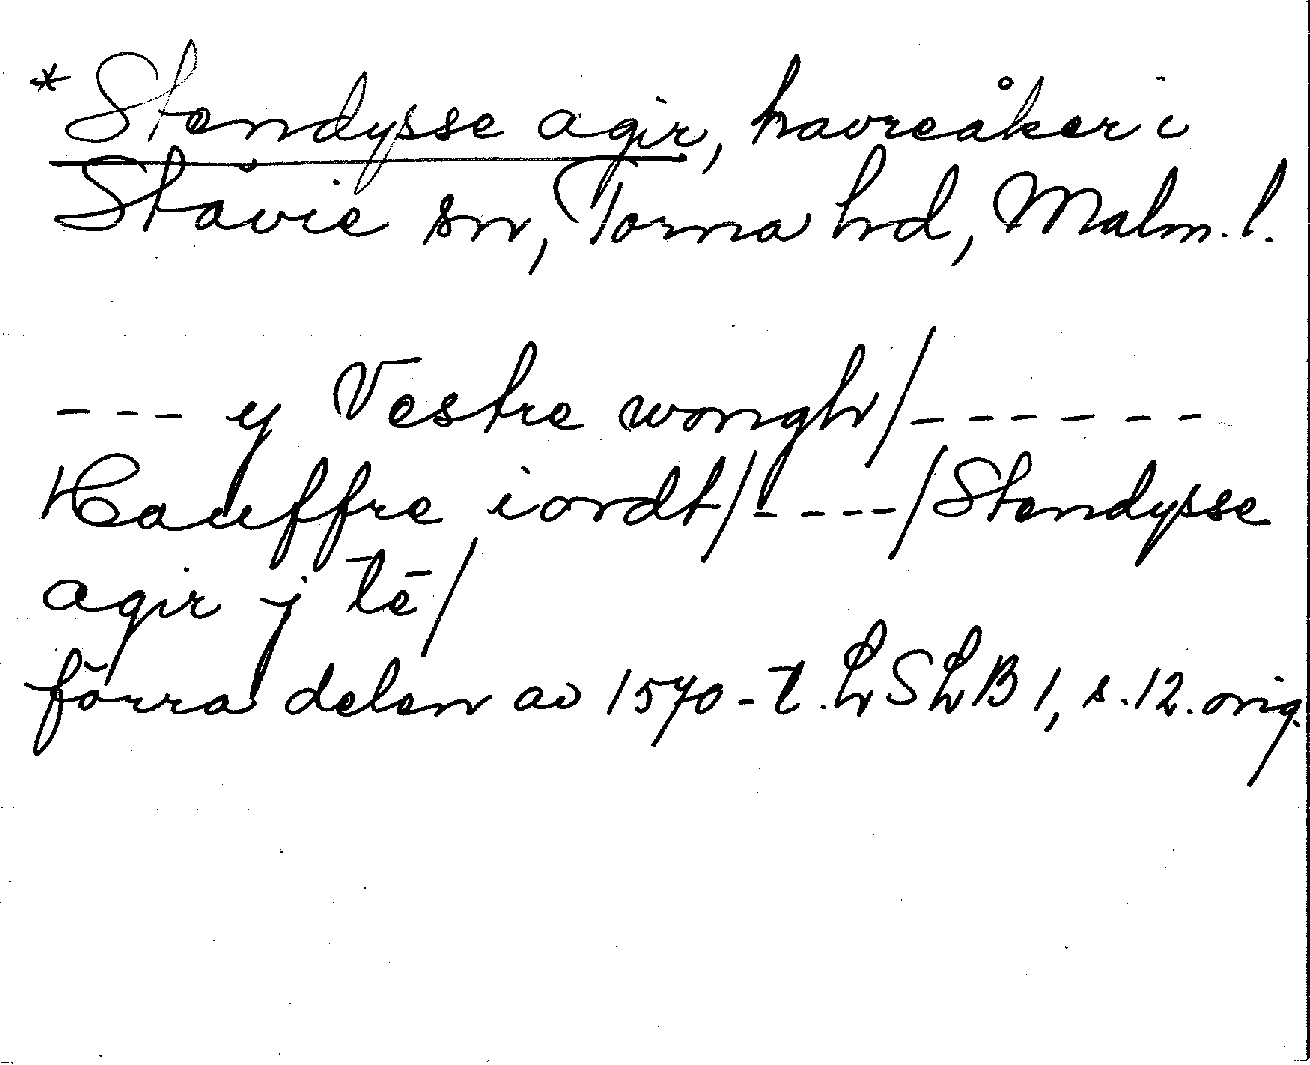 * Stendysse agir, havreåker i
Stävie sn, Torna hd, Malm. l.
--- y Vestre wongh/------
Hauffre iordt/----/Stendysse
agir j tē/
förra delen av 1570-t. LSLB 1, s. 12. orig.